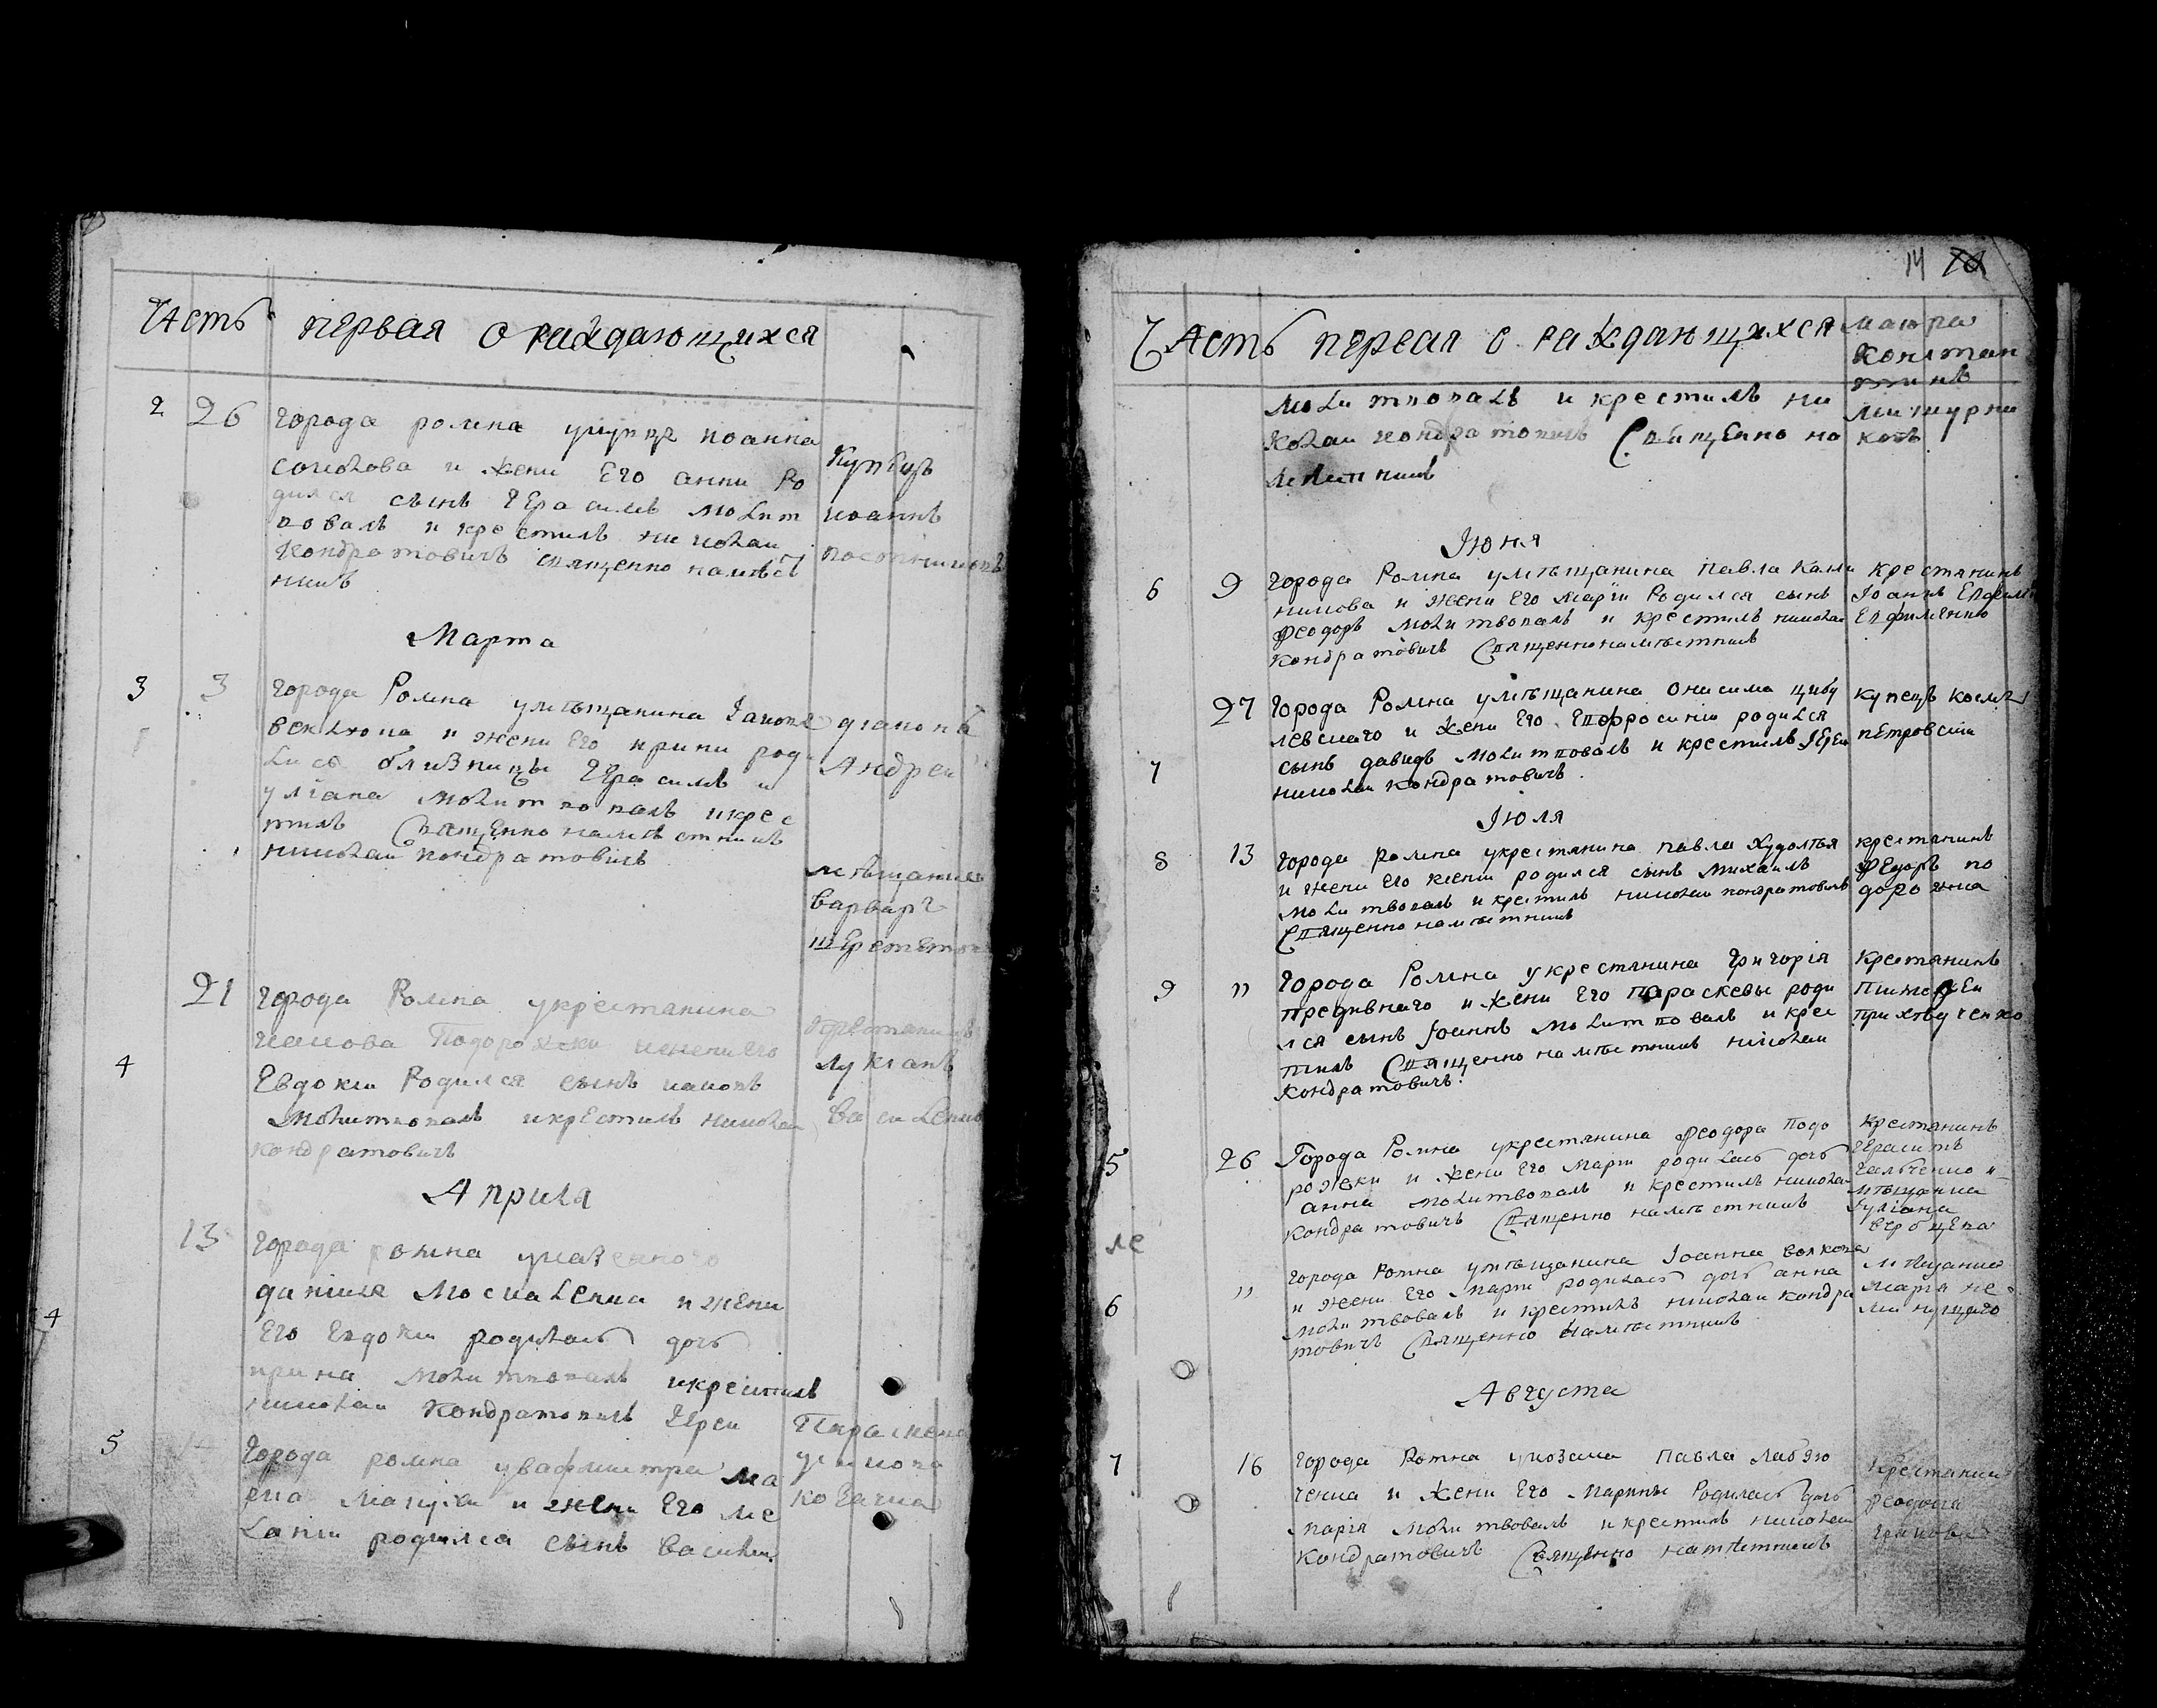 Часть первая о раждающихся
2 26 города ромна укупца иоанна
соколова и жени Его анни Ро
дился сынъ Герасимъ молит
вовалъ и крестилъ николаи
Кондратовичъ священно намѣст
никъ
Купецъ
иоаннъ
постниковъ
Марта
3 3 города Ромна умѣщанина
и жени Его ирини род
лись близницы Герасимъ и
улiана молитвовалъ икрес
тилъ Священнонамѣстникъ
николаи кондратовичъ
дiаконъ
Андреи
мѣщанка
варвара
21 города Ромна укрестянина
Иакова Подорожки ижени его
Евдокiи Родился сынъ иаковъ
молитвовалъ икрестилъ николаи
кондратовичъ
4
крестянинъ
лукiанъ
Априля
13 города ромна
и жени
Его Евдокiи родилась дочь
ирина молитвовалъ икрестилъ
николаи Кондратовичъ Iереи
4
5 города ромна увахмистра
и жени Его ме
ланiи родился сынъ василiи
14
Часть первая о раждающихся
маiора
Констан
тинъ
молитвовалъ и крестилъ ни
колаи кондратовичъ Священно на
мѣстникъ
Iюня
6 9 города Ромна умѣщанина павла кали
никова и жени Его марiи Родился сынъ
Феодоръ молитвовалъ и крестилъ николаи
кондратовичъ Священнонамѣстникъ
крестянинъ
Iоаннъ
Евфименко
27 города Ромна умѣщанина онисима цибу
левскаго и жени Его Евфросинiи родился
сынъ давидъ молитвовалъ и крестилъ Iереи
николаи Кондратовичъ
7
купецъ косма
петровскiи
Iюля
8 13 города ромна укрестянина павла
и жени Его ксенiи родился сынъ михаилъ
молитвовалъ и крестилъ николаи кондратовичъ
Священнонамѣстникъ
крестянинъ
Федоръ по
дорожка
9 11 города Ромна укрестянина Григорiя
предивнаго и жени Его параскевы роди
лся сынъ Iоаннъ молитвовалъ и крес
тилъ Священнонамѣстникъ николаи
кондратовичъ
крестянинъ
приходченко
5 26 Города Ромна укрестянина Феодора Подо
рожки и жени Его марiи родилась дочь
анна молитвовалъ и крестилъ николаи
кондратовичъ Священно намѣстникъ
крестянинъ
Герасимъ
гальченко и
мѣщанка
Iулiана
6 11 города Ромна умѣщанина Iоанна волкова
и жени Его марiи родилась дочь анна
молитвовалъ и крестилъ николаи кондра
товичъ Священно намѣстникъ
мѣщанка
марiя не
минущаго
Августа
7 16 города Ромна укозака павла
и жени Его марины Родилась дочь
марiя молитвовалъ и крестилъ николаи
кондратовичъ Священно намѣстникъ
крестянинъ